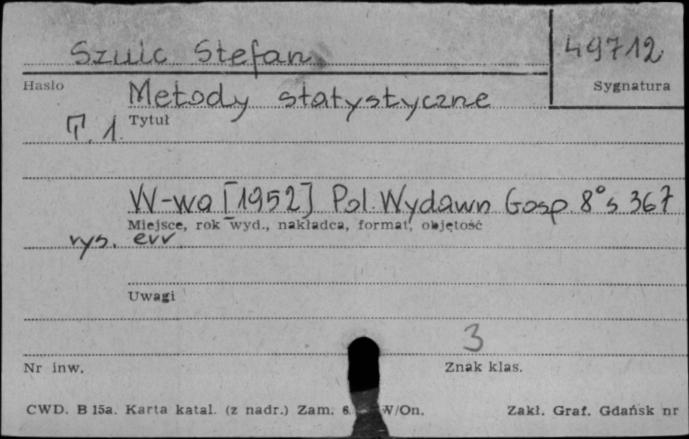 Szulc Stefan
49712
Hasło
Sygnatura
Metody statystyczne
Tytuł
T. 1.
W-wa [1952] Pol. Wydawn Gosp. 8° s 367
Miejsce, rok wyd., nakładca, format, objętość
rys. err.
Uwagi
3
Nr inw.
Znak klas.
CWD. B 15a. Karta katal. (z nadr.) Zam. 6. W/On.
Zakł. Graf. Gdańsk nr